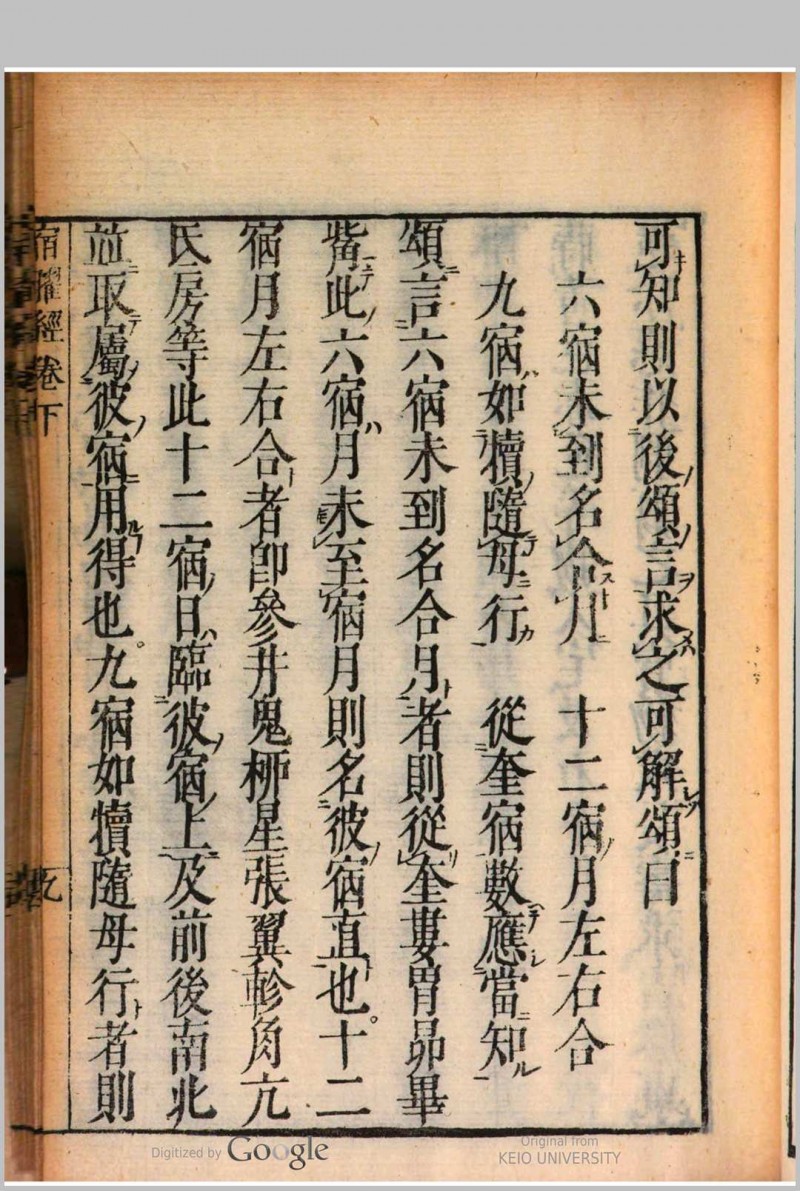 可知則以後頌言求之可解頌曰
六宿未到名合月　十二宿月左右合
九宿如犢隨母行　從奎宿數應當知
頌言六宿未到名合月者則從奎婁胃昴畢
觜此六宿月未至宿月則名彼宿直也。十二
宿月左右合者卽參井鬼栁星張翼軫角亢
氐房等此十二宿日臨彼宿上及前後南北
並取屬彼宿用得也。九宿如犢隨母行者則
宿曜經卷下
Digitized by Google
Original from
KEIO UNIVERSITY